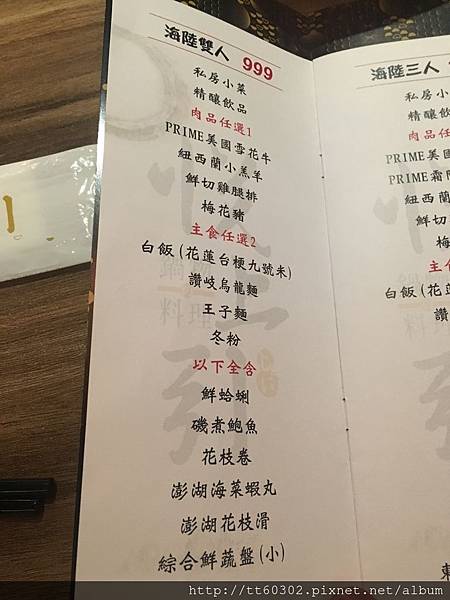 海陸雙人 999
私房小菜
精釀飲品
肉品任選1
PRIME美國雪花牛
紐西蘭小羔羊
鮮切雞腿排
梅花豬
主食任選2
白飯(花蓮台梗九號米)
讚岐烏龍麵
王子麵
冬粉
以下全含
鮮蛤蜊
磯煮鮑魚
花枝卷
澎湖海菜蝦丸
澎湖花枝滑
綜合鮮蔬盤(小)
海陸三人
私房小
精釀飲
肉品任
PRIME美
PRIME霜
紐西蘭
鮮切
梅
主食
白飯(花
讚
http://tt60302.pixnet.net/album